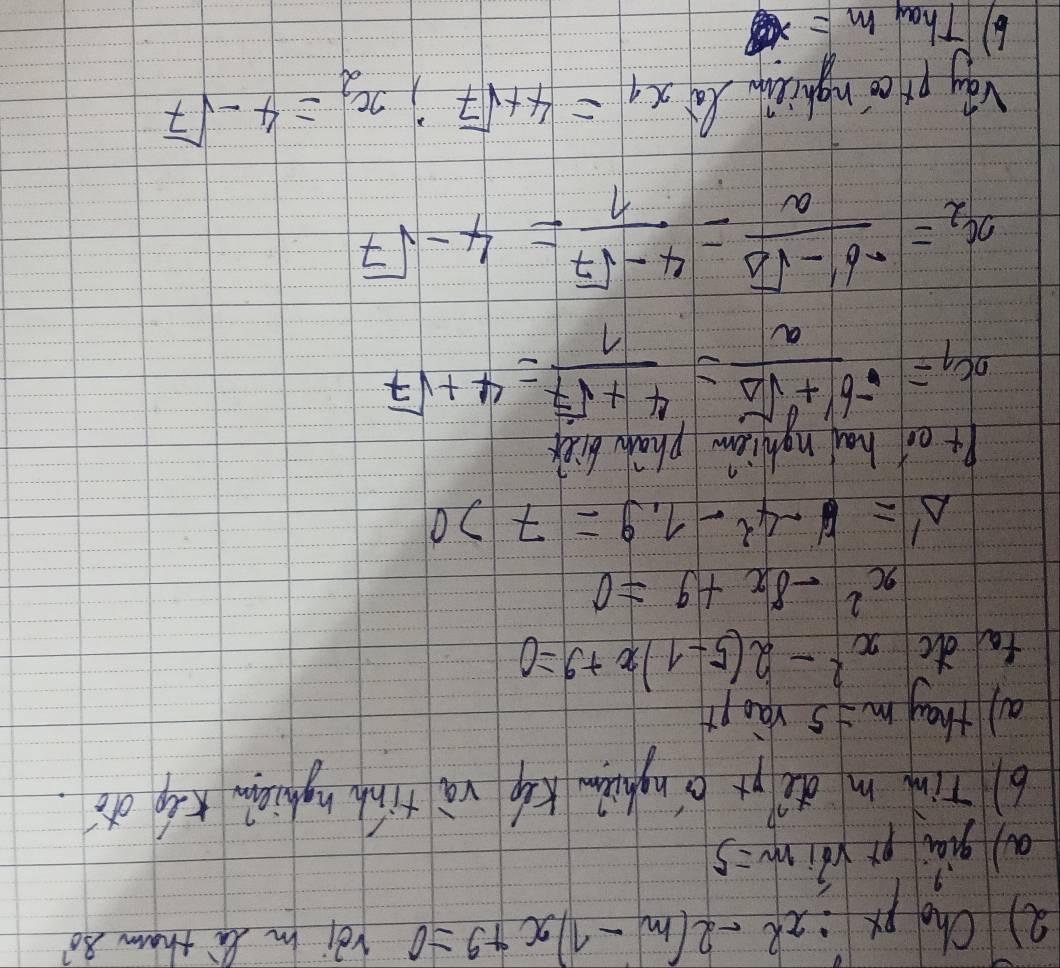 2) Cho pt : x² - 2(m - 1)x + 9 = 0 với m là tham số
a) giải pt với m = 5
b) Tìm m để pt có nghiệm kép và tính nghiệm kép đó.
a) thay m = 5 vào pt
ta đc x² - 2(5 - 1)x + 9 = 0
x² - 8x + 9 = 0
Δ' = -4² - 1.9 = 7 > 0
Pt có hai nghiệm phân biệt
x₁ = (-b' + √Δ')/a = (4 + √7)/1 = 4 + √7
x₂ = (-b' - √Δ)/a - (4 - √7)/1 = 4 - √7
Vậy pt có nghiệm là x₁ = 4 + √7 ; x₂ = 4 - √7
b) Thay m =